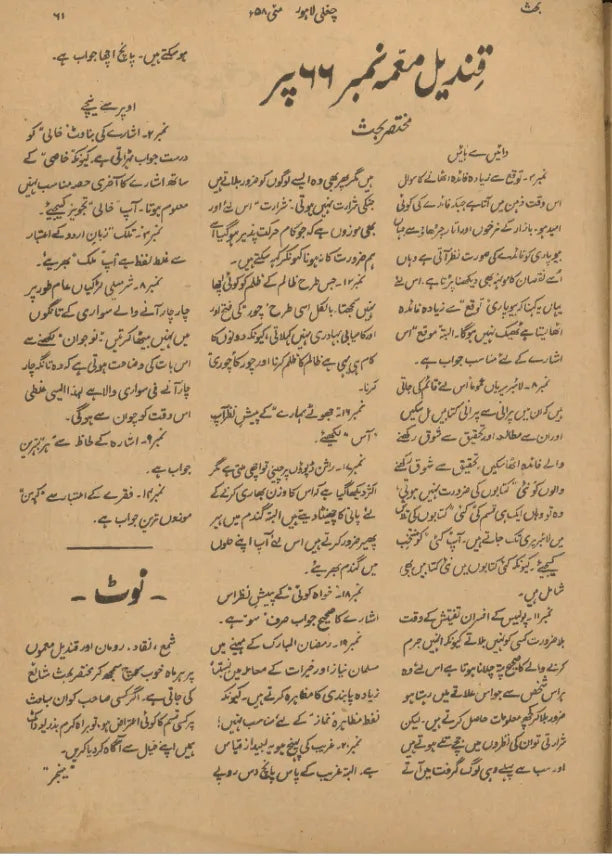 بحث
چغلی لاہور مئی ۵۸ء
۶۱
قندیل معمّہ نمبر ۶۶ پر
مختصر بحث
دائیں سے بائیں
نمبر۲۔ توقع سے زیادہ فائدہ اٹھانے کا سوال
اس وقت ذہن میں آتا ہے جبکہ فائدے کی کوئی
امید ہو۔ بازار کے نرخوں اور اتار چڑھاؤ سے جہاں
بیوپاری کو فائدے کی صورت نظر آتی ہے وہاں
اُسے نقصان کا مونہہ بھی دیکھنا پڑتا ہے۔ اس لئے
یہاں یہ کہنا کہ بیوپاری "توقع" سے زیادہ فائدہ
اٹھا لیتا ہے ٹھیک نہیں ہوگا۔ البتہ موقع" اس
اشارے کے لئے مناسب جواب ہے۔
نمبر۸۔ لائبریریاں عموماً اس لئے قائم کی جاتی
ہیں کہ ان میں پرانی سے پرانی کتابیں مل سکیں
اور ان سے مطالعہ اور تحقیق سے شوق رکھنے
والے فائدہ اٹھا سکیں۔ تحقیق سے شوق رکھنے
والوں کو نئی" کتابوں کی ضرورت نہیں ہوتی"
وہ تو وہاں ایک ہی قسم کی کئی" کتابوں کی
میں لائبریری تک جاتے ہیں۔ آپ کئی" کو منتخب
کیجئے۔ کیونکہ کئی کتابوں میں نئی کتابیں بھی
شامل ہیں۔
نمبر۱۱۔ پولیس کے افسران تفتیش کے وقت
بلا ضرورت کسی کو نہیں بلاتے کیونکہ انہیں جرم
کرنے والے کا صحیح پتہ چلانا ہوتا ہے اس لئے وہ
ہر اس شخص سے جو اس علاقے میں رہتا ہو
ضرور بلا کر کچھ معلومات حاصل کرتے ہیں۔ لیکن
شرارتی تو ان کی نظروں میں جچے تلے ہوتے ہیں
اور سب سے پہلے وہی لوگ گرفت میں آتے
ہیں مگر پھر بھی وہ ایسے لوگوں کو ضرور بلاتے ہیں
جنکی شرارت نہیں ہوتی۔ شرارت" اس لئے اور
بھی موزوں ہے کہ جو کام حرکت پذیر ہو گیا اُسے
ہم ضرورت کا نہ ہونا کیونکر کہہ سکتے ہیں۔
نمبر۱۲۔ جس طرح ظالم کے ظلم کو کوئی اچھا
نہیں کہتا۔ بالکل اسی طرح "چور" کی فتح اور
اور کامیابی بہادری نہیں کہلاتی، کیونکہ دونوں کا
کام ہی یہی ہے ظالم کا ظلم کرنا اور چور کا چوری
کرنا۔
نمبر۱۶۔ جھوٹے بہارے" کے پیش نظر آپ
"آس" لکھئے۔
نمبر۱۷۔ راشن ڈپوؤں پر چینی تو اچھی ملتی ہے مگر
اکثر دیکھا گیا ہے کہ اس کا وزن بھاری کرنے کے
لئے پانی کا چھینٹا دیتے ہیں البتہ گندم میں ہیر
پھیر ضرور کرتے ہیں اس لئے آپ اپنے حلوں
میں گندم بھریئے۔
نمبر۱۸۔ خواہ کوئی" کے پیش نظر اس
اشارے کا صحیح جواب صرف "سو" ہے۔
نمبر۱۹۔ رمضان المبارک کے مہینے میں
مسلمان نیاز اور خیرات کے معاملہ میں نسبتاً
زیادہ پابندی کا مظاہرہ کرتے ہیں۔ کیونکہ
لفظ مظاہرہ نماز" کے لئے مناسب نہیں؛
نمبر۲۰۔ غریب کی پہنچ سو یہ بعید از قیاس
ہے۔ البتہ غریب کے پاس پانچ دس روپے
ہو سکتے ہیں۔ پانچ اچھا جواب ہے۔
اوپر سے نیچے
نمبر۲۔ اشارے کی بناوٹ "خالی" کو
درست جواب ٹہراتی ہے کیونکہ "خاصی" کے
ساتھ اشارے کا آخری حصہ مناسب نہیں
معلوم ہوتا۔ آپ "خالی" تجویز کیجئے۔
نمبر۳۔ تلک" زبان اردو کے اعتبار
سے غلط لفظ ہے آپ "ملک" بھریئے۔
نمبر۸۔ شرمیلی لڑکیاں عام طور پر
چار چار آنے والے سواری کے تانگوں
میں نہیں بیٹھا کرتیں۔ "نوجوان" لکھنے سے
اس بات کی وضاحت ہوتی ہے کہ وہ تانگہ چار
چار آنے فی سواری والا ہے لہذا ایسی غلطی
اس وقت کو جوان سے ہوگی۔
نمبر۹۔ اشارہ کے لحاظ سے "ہر" بہترین
جواب ہے۔
فقرے کے اعتبار سے "کہن"
موزوں ترین جواب ہے۔
۔ نوٹ ۔
شمع، نقاد، رومان اور قندیل معموں
پر ہر ماہ خوب سوچ سمجھ کر مختصر بحث شائع
کی جاتی ہے۔ اگر کسی صاحب کو ان مباحث
پر کسی قسم کا کوئی اعتراض ہو، تو براہ کرم بذریعہ ڈاک
ہمیں اپنے خیال سے آگاہ کر دیا کریں۔
"مینجر"